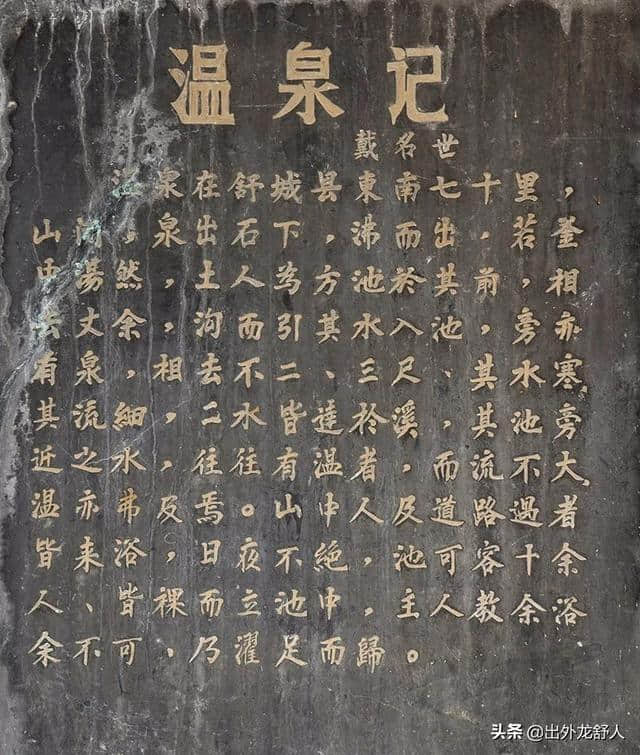 温泉记
戴名世
温泉在舒城县東南七十里，
山間多泉出石下，沸而出，若釜
中湯然，土人為方池於其前，相
去丈余，沟而引其水入池，旁亦
有泉，相去不二、三尺、其水寒
其流，細二水皆達於溪，其池旁
近之水，往往有温者，而流不大
温亦弗及焉。山中人及道路過者
皆来浴，日夜不絶，池可客十余
人、皆裸而立池中，主人教余浴、
余不可、乃濯足而歸。
头条 @出外龙舒人